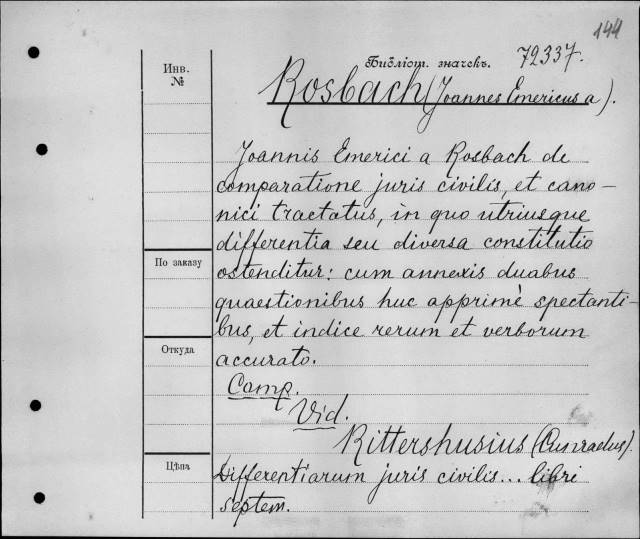 144
Библіот. значекъ. 72337.
Инв.
№
Rosbach (Joannes Emericus a).
Joannis Emerici a Rosbach de
comparatione juris civilis, et cano-
nici tractatus, in quo utriusque
differentia seu diversa constitutio
ostenditur: cum annexis duabus
quaestionibus huc apprimè spectanti-
bus, et indice rerum et verborum
accurato.
По заказу
Откуда
Цѣна
Comp.
Vid.
Rittershusius (Cunradus).
Differentiarum juris civilis... libri
septem.